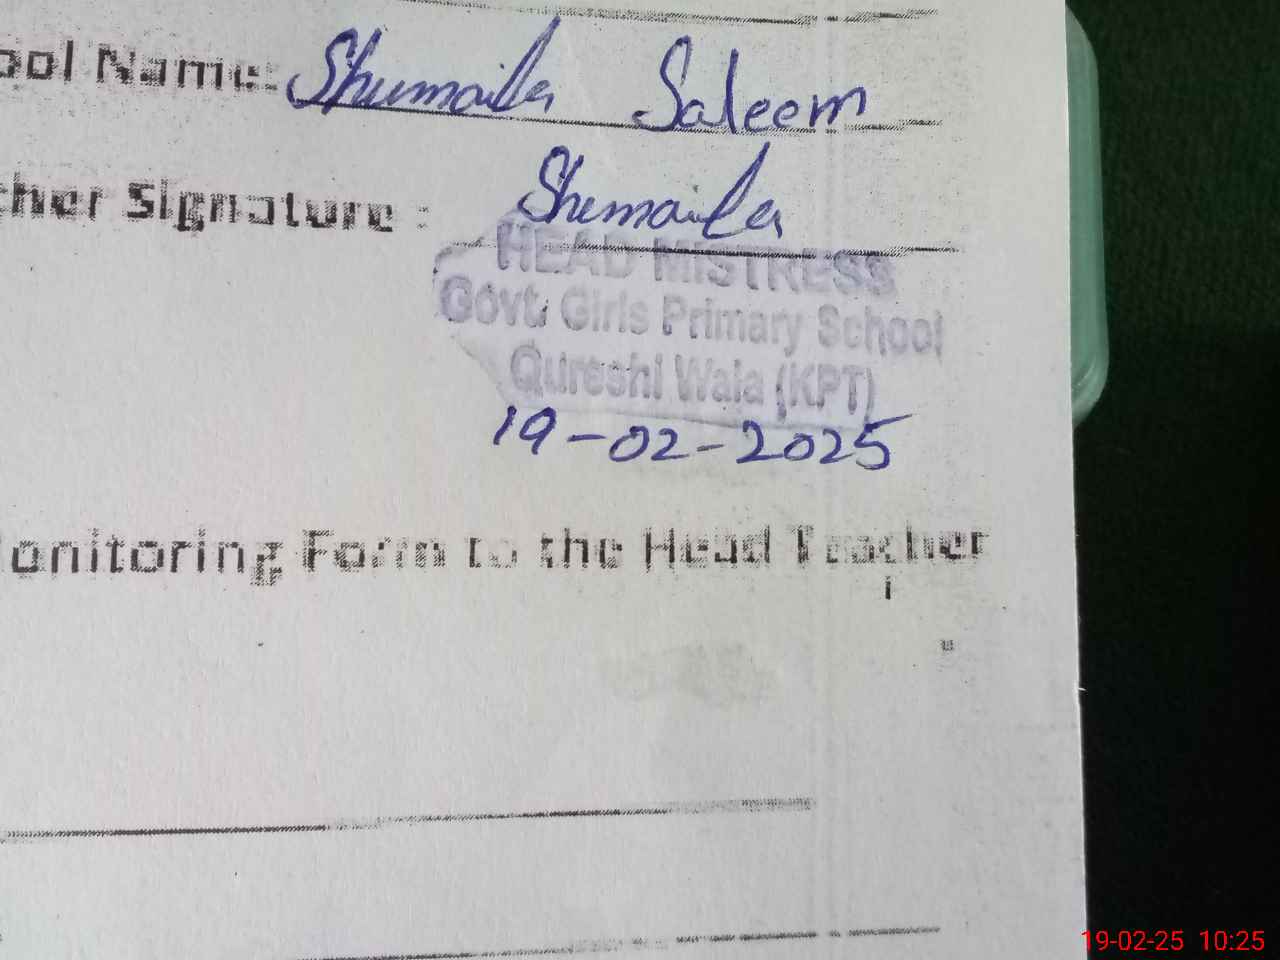 ool Name: Shumaila Saleem
cher Signature : Shumaila
HEAD MISTRESS
Govt. Girls Primary School
Qureshi Wala (KPT)
19-02-2025
onitoring Form to the Head Teacher
19-02-25 10:25